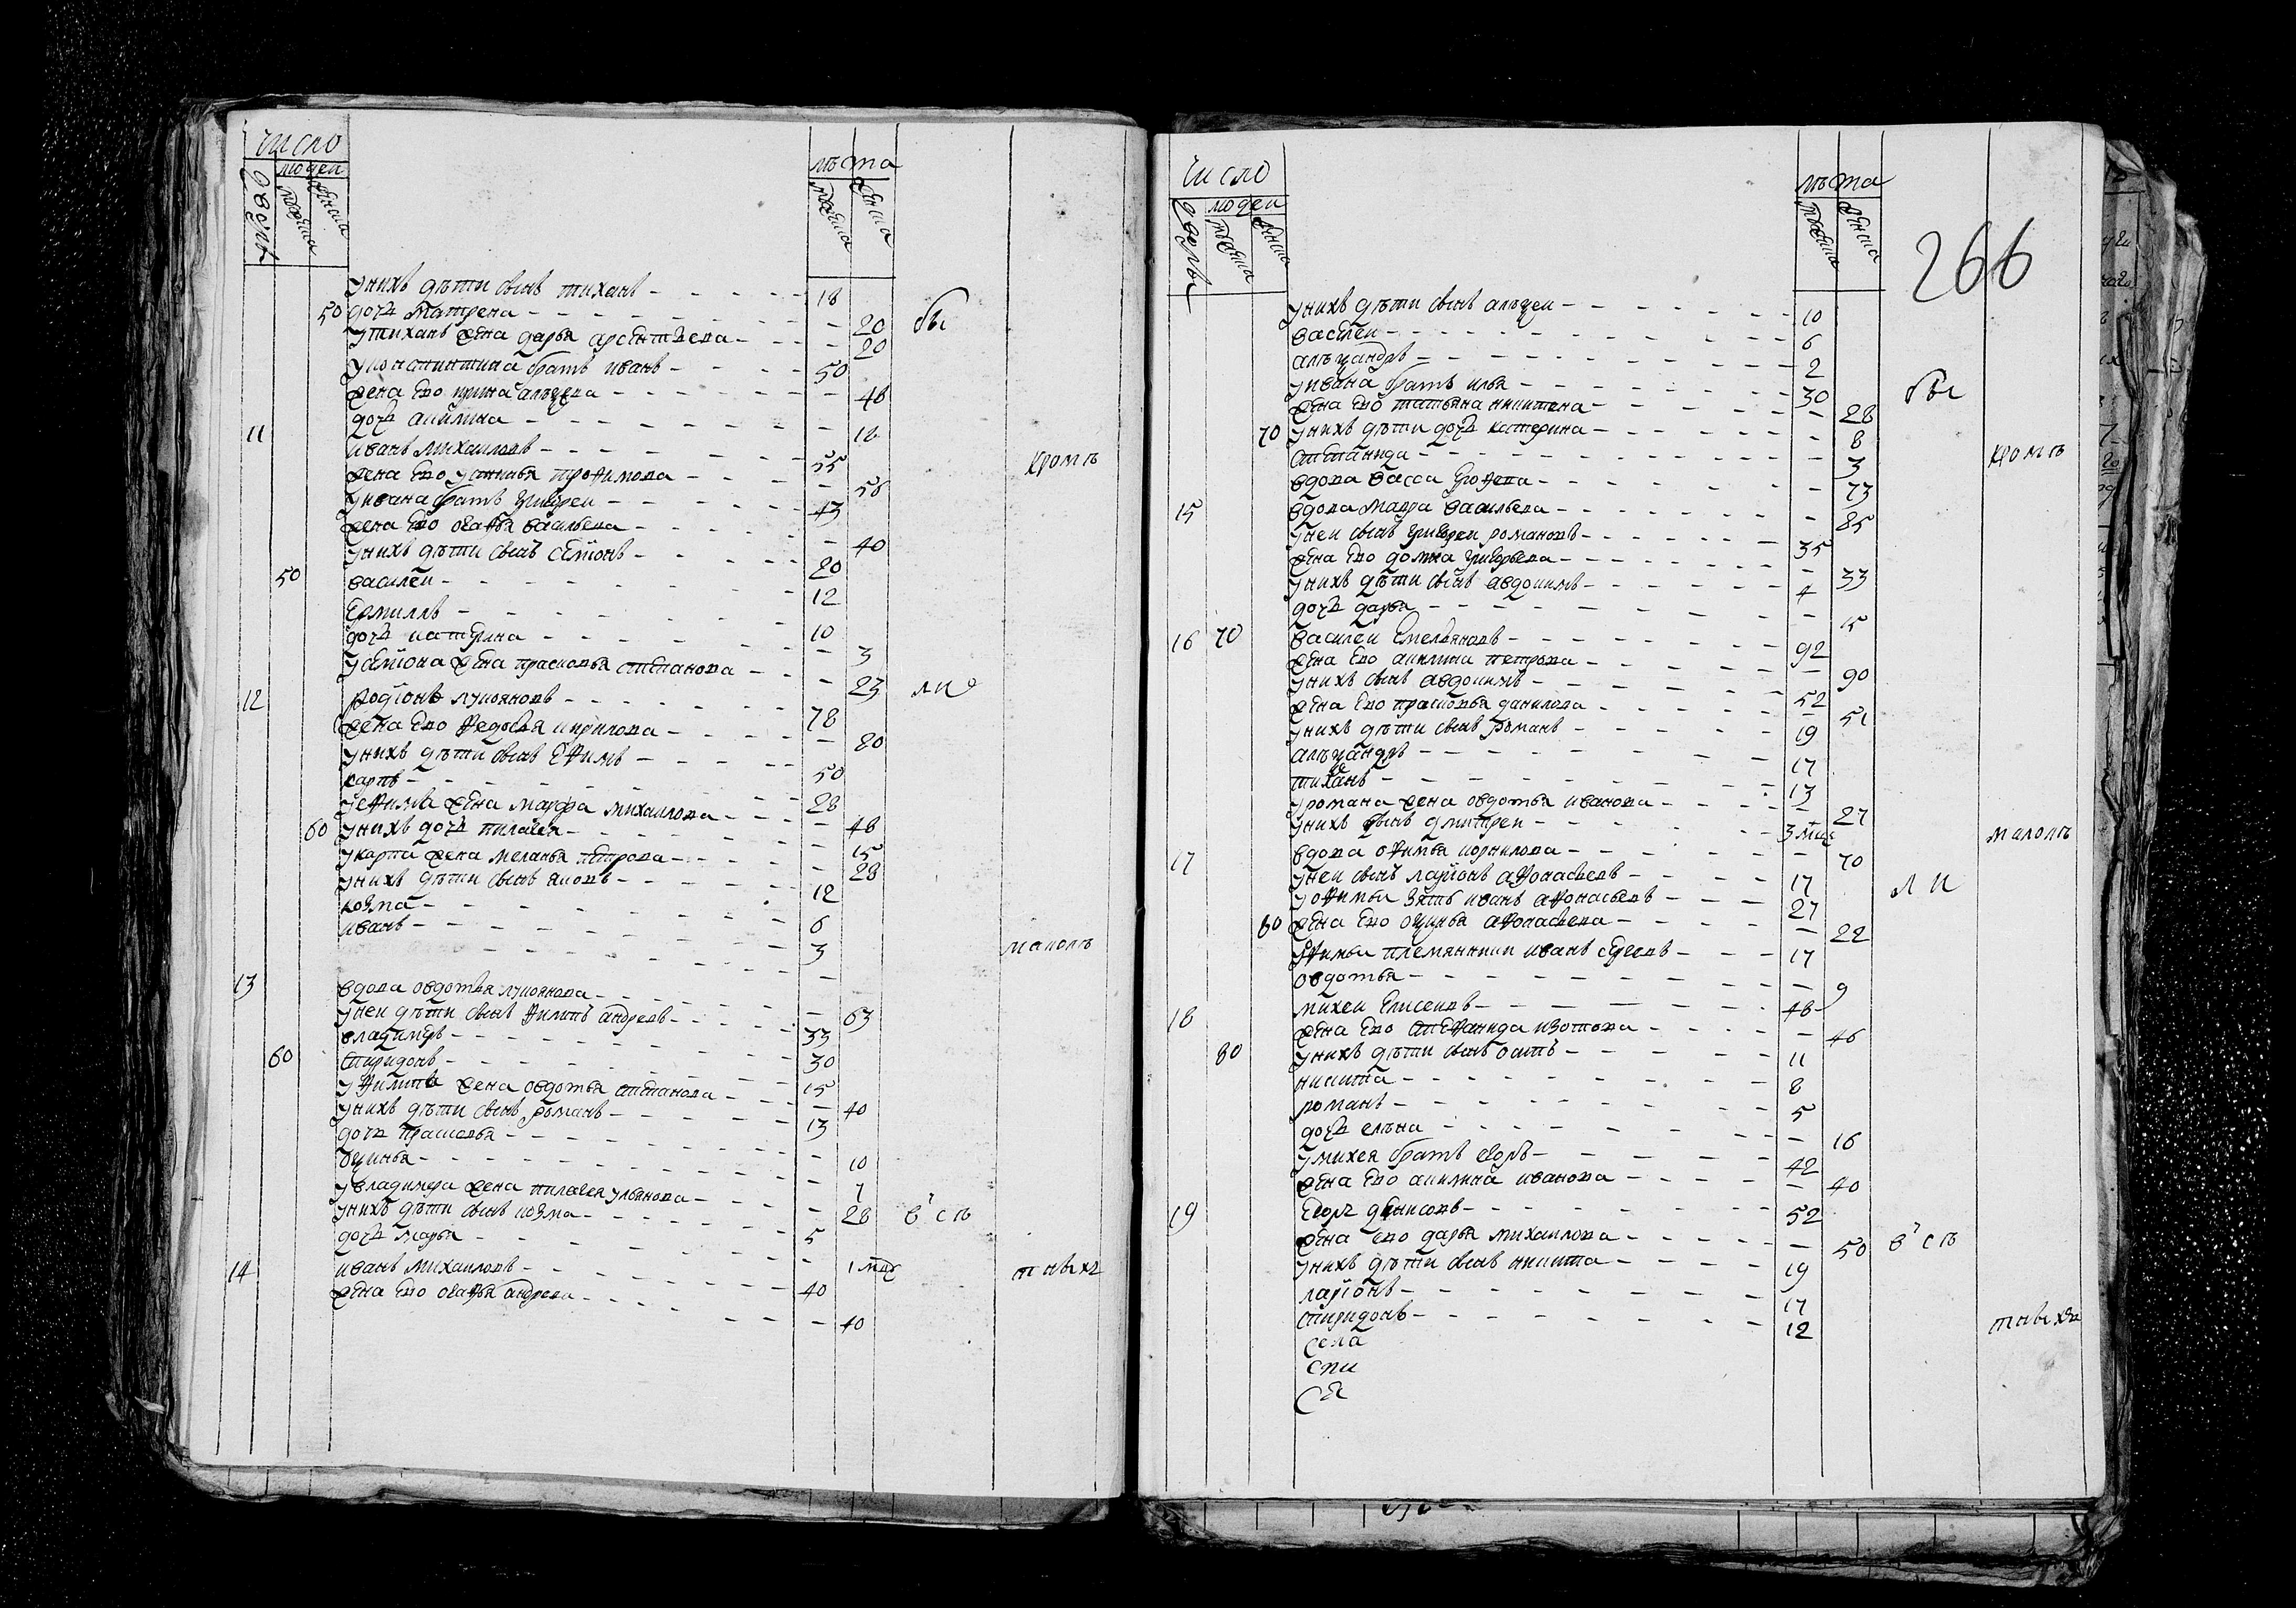 число
людеи
дворы
мужеска
женска
лѣта
мужеска
женска
унихъ дѣти сынъ тиханъ - 18
50 дочь матрена - 20 бы
утихана жена дарья арсентьева - 20
уконстинтина братъ иванъ - 50
жена ево ирина алѣѯева - 48
дочь акилина - 18
11 иванъ михаиловъ - 55 кромѣ
жена ево устинья трофимова - 56
уивана братъ григореи - 43
жена ево агафья васильева - 40
унихъ дѣти сынъ семионъ - 20
50 василеи - 12
ермилъ - 10
дочь катерина - 3
усемиона жена прасковья степанова - 23 ли
12 родионъ лукояновъ - 78
жена ево федосья кирилова - 80
унихъ дѣти сынъ ефимъ - 50
карпъ - 28
уефима жена мавра михаилова - 48
60 унихъ дочь пилагея - 15
укарпа жена меланья петрова - 28
унихъ дѣти сынъ яковъ - 12
козма - 6
иванъ - 3 маломъ
13 вдова овдотья лукоянова - 63
унеи дѣти сынъ филипъ андреевъ - 33
владимеръ - 30
60 спиридонъ - 15
уфилипа жена овдотья степанова - 40
унихъ дѣти сынъ романъ - 13
дочь прасковья - 10
оѯинья - 7
увладимера жена пилагея ульянова - 28 в сѣ
унихъ дѣти сынъ козма - 5
дочь марья - 1 мцъ
14 иванъ михаиловъ - 40 тныхъ
жена ево агафья андреева - 40
число
людеи
дворы
мужеска
женска
лѣта
мужеска
женска
266
унихъ дѣти сынъ алѣѯеи - 10
василеи - 6
алѣѯандръ - 2
уивана братъ илья - 30 бы
жена ево татьяна никитена - 28
70 унихъ дѣти дочь катерина - 8
степанида - 3 кромѣ
вдова васса ерофева - 73
15 вдова мавра васильева - 85
унеи сынъ григореи романовъ - 35
жена ево домна григорьева - 33
унихъ дѣти сынъ авдокимъ - 4
дочь дарья - 15
16 70 василеи емельяновъ - 92
жена ево акилина петрова - 90
унихъ сынъ авдокимъ - 52
жена ево прасковья данилова - 51
унихъ дѣти сынъ романъ - 19
алѣѯандръ - 17
тиханъ - 13
уромана жена овдотья иванова - 27
унихъ сынъ дмитреи - 3 мцъ маломъ
17 вдова офимья корнилова - 70
унеи сынъ ларионъ афонасьевъ - 17 ли
уофимьи зять иванъ афонасьевъ - 27
80 жена ево оѯинья афонасьева - 22
уфимьи племянники иванъ сергеевъ - 17
овдотья - 9
18 михеи елисеивъ - 48
жена ево степанида изотова - 46
80 унихъ дѣти сынъ осипъ - 11
никита - 8
романъ - 5
дочь елѣна - 16
умихея братъ егоръ - 42
жена ево акилина иванова - 40
19 егоръ денисовъ - 52
жена ево дарья михаилова - 50 в сѣ
унихъ дѣти сынъ никита - 19
ларионъ - 17
спиридонъ - 12 тныхъ
села
спи